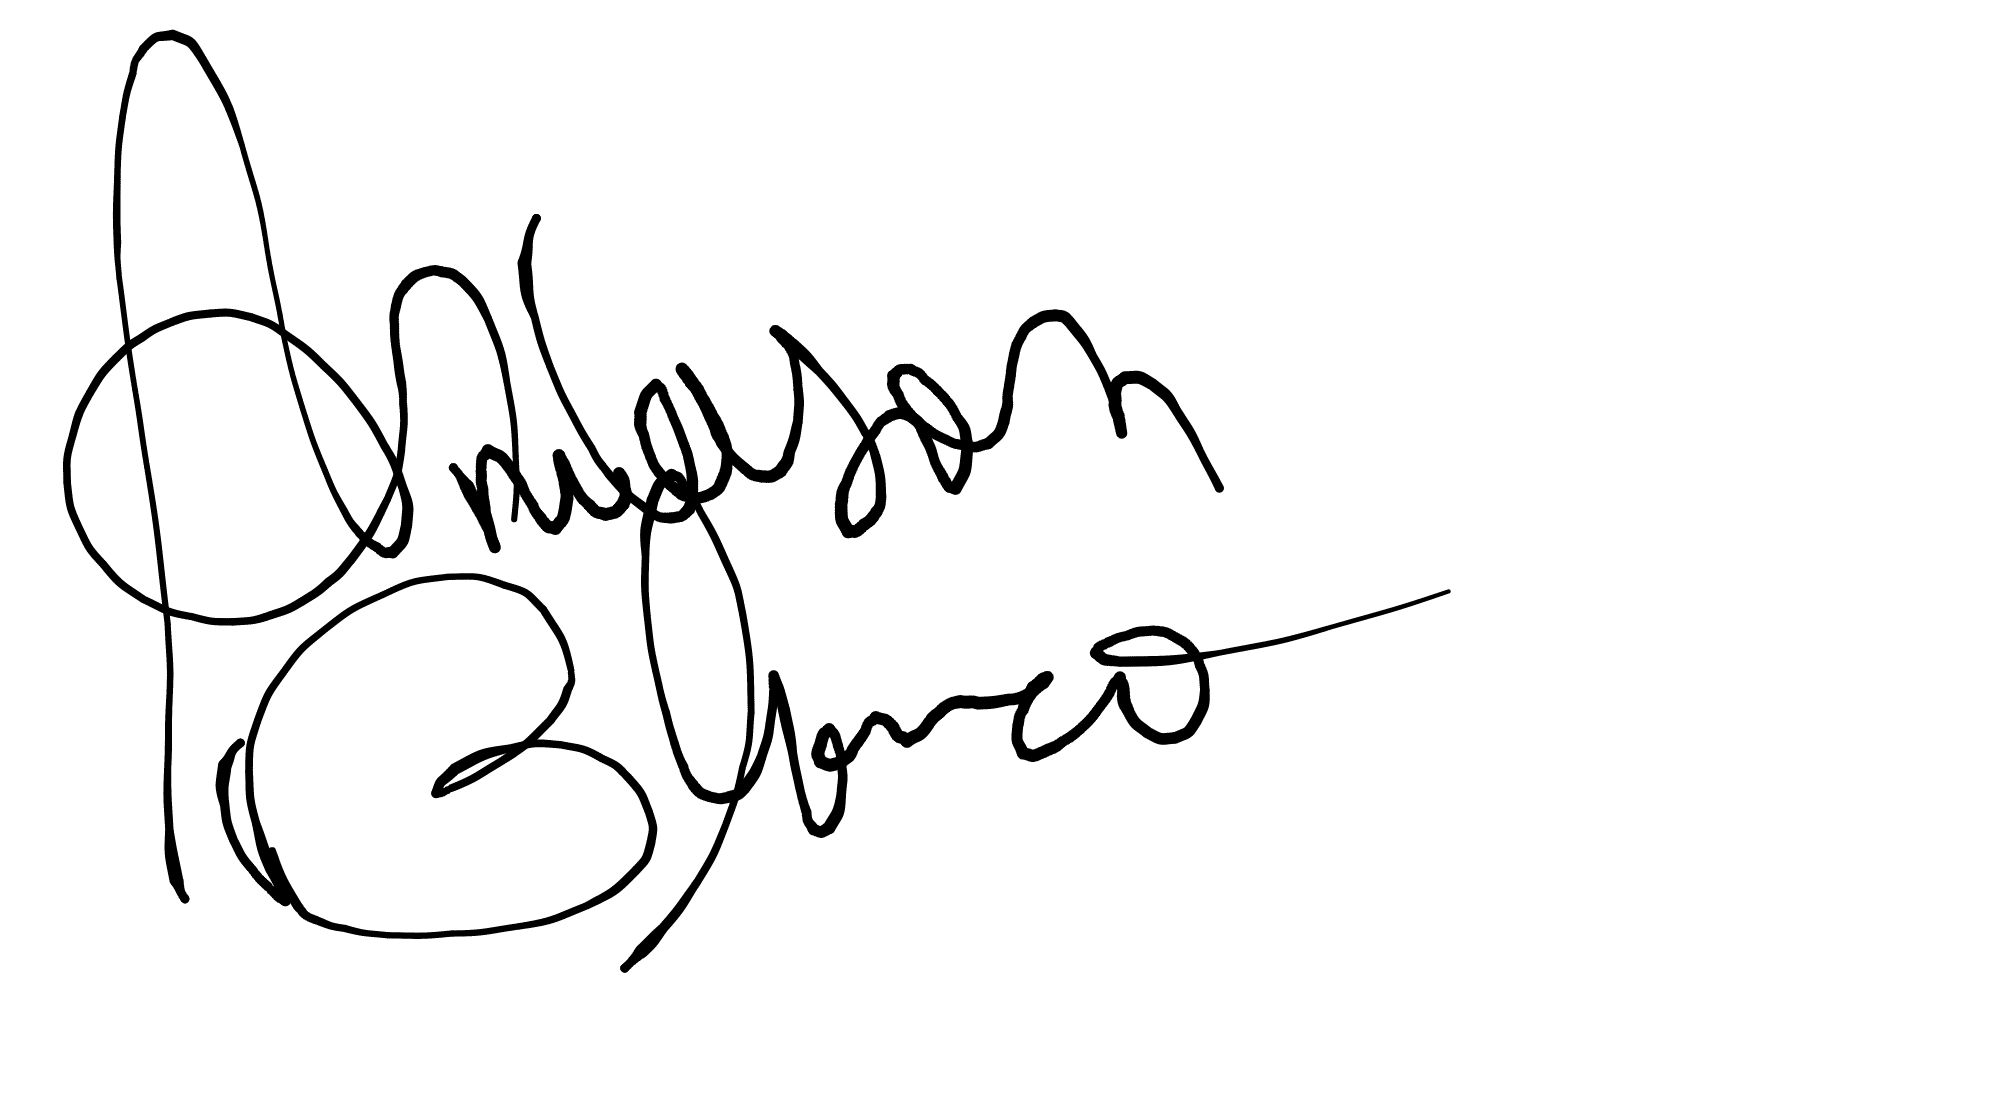 Anderson
Blanco